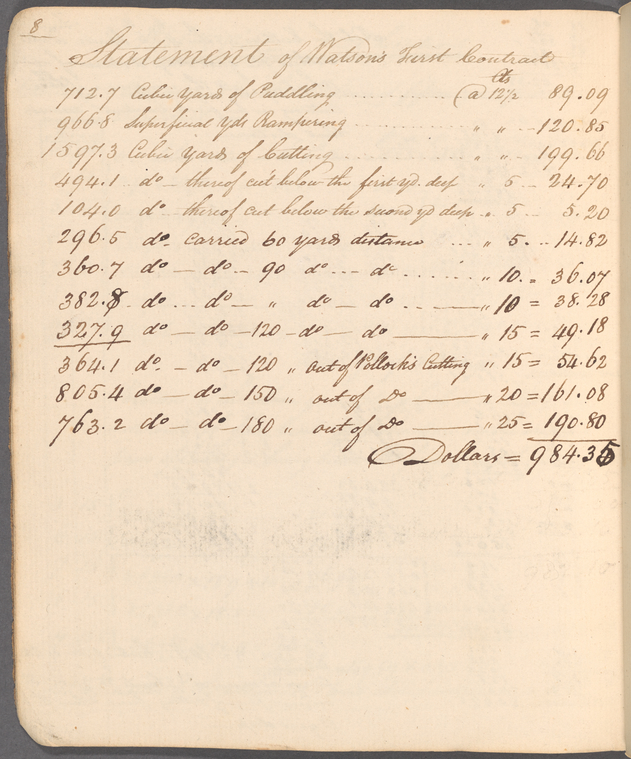 8
Statement of Watson's First Contract
Cts
712.7 Cubic yards of Puddling .......... @ 12½ 89.09
966.8 Superficial yds Rampering .......... " " -- 120.85
1597.3 Cubic yards of Cutting .......... " " -- 199.66
494.1 do — thereof cut below the first yd. deep " 5 -- 24.70
104.0 do — thereof cut below the second yd deep " 5 -- 5.20
296.5 do. carried 60 yards distance ... " 5 ... 14.82
360.7 do — do -- 90 do --- do ...... " 10. = 36.07
382.8 do ... do — " do — do —— " 10 = 38.28
327.9 do — do — 120 — do — do —— " 15 = 49.18
364.1 do. — do — 120 " out of Pollock's Cutting " 15 = 54.62
805.4 do — do — 150 " out of Do —— " 20 = 161.08
763.2 do — do — 180 " out of Do —— " 25 = 190.80
Dollars = 984.35